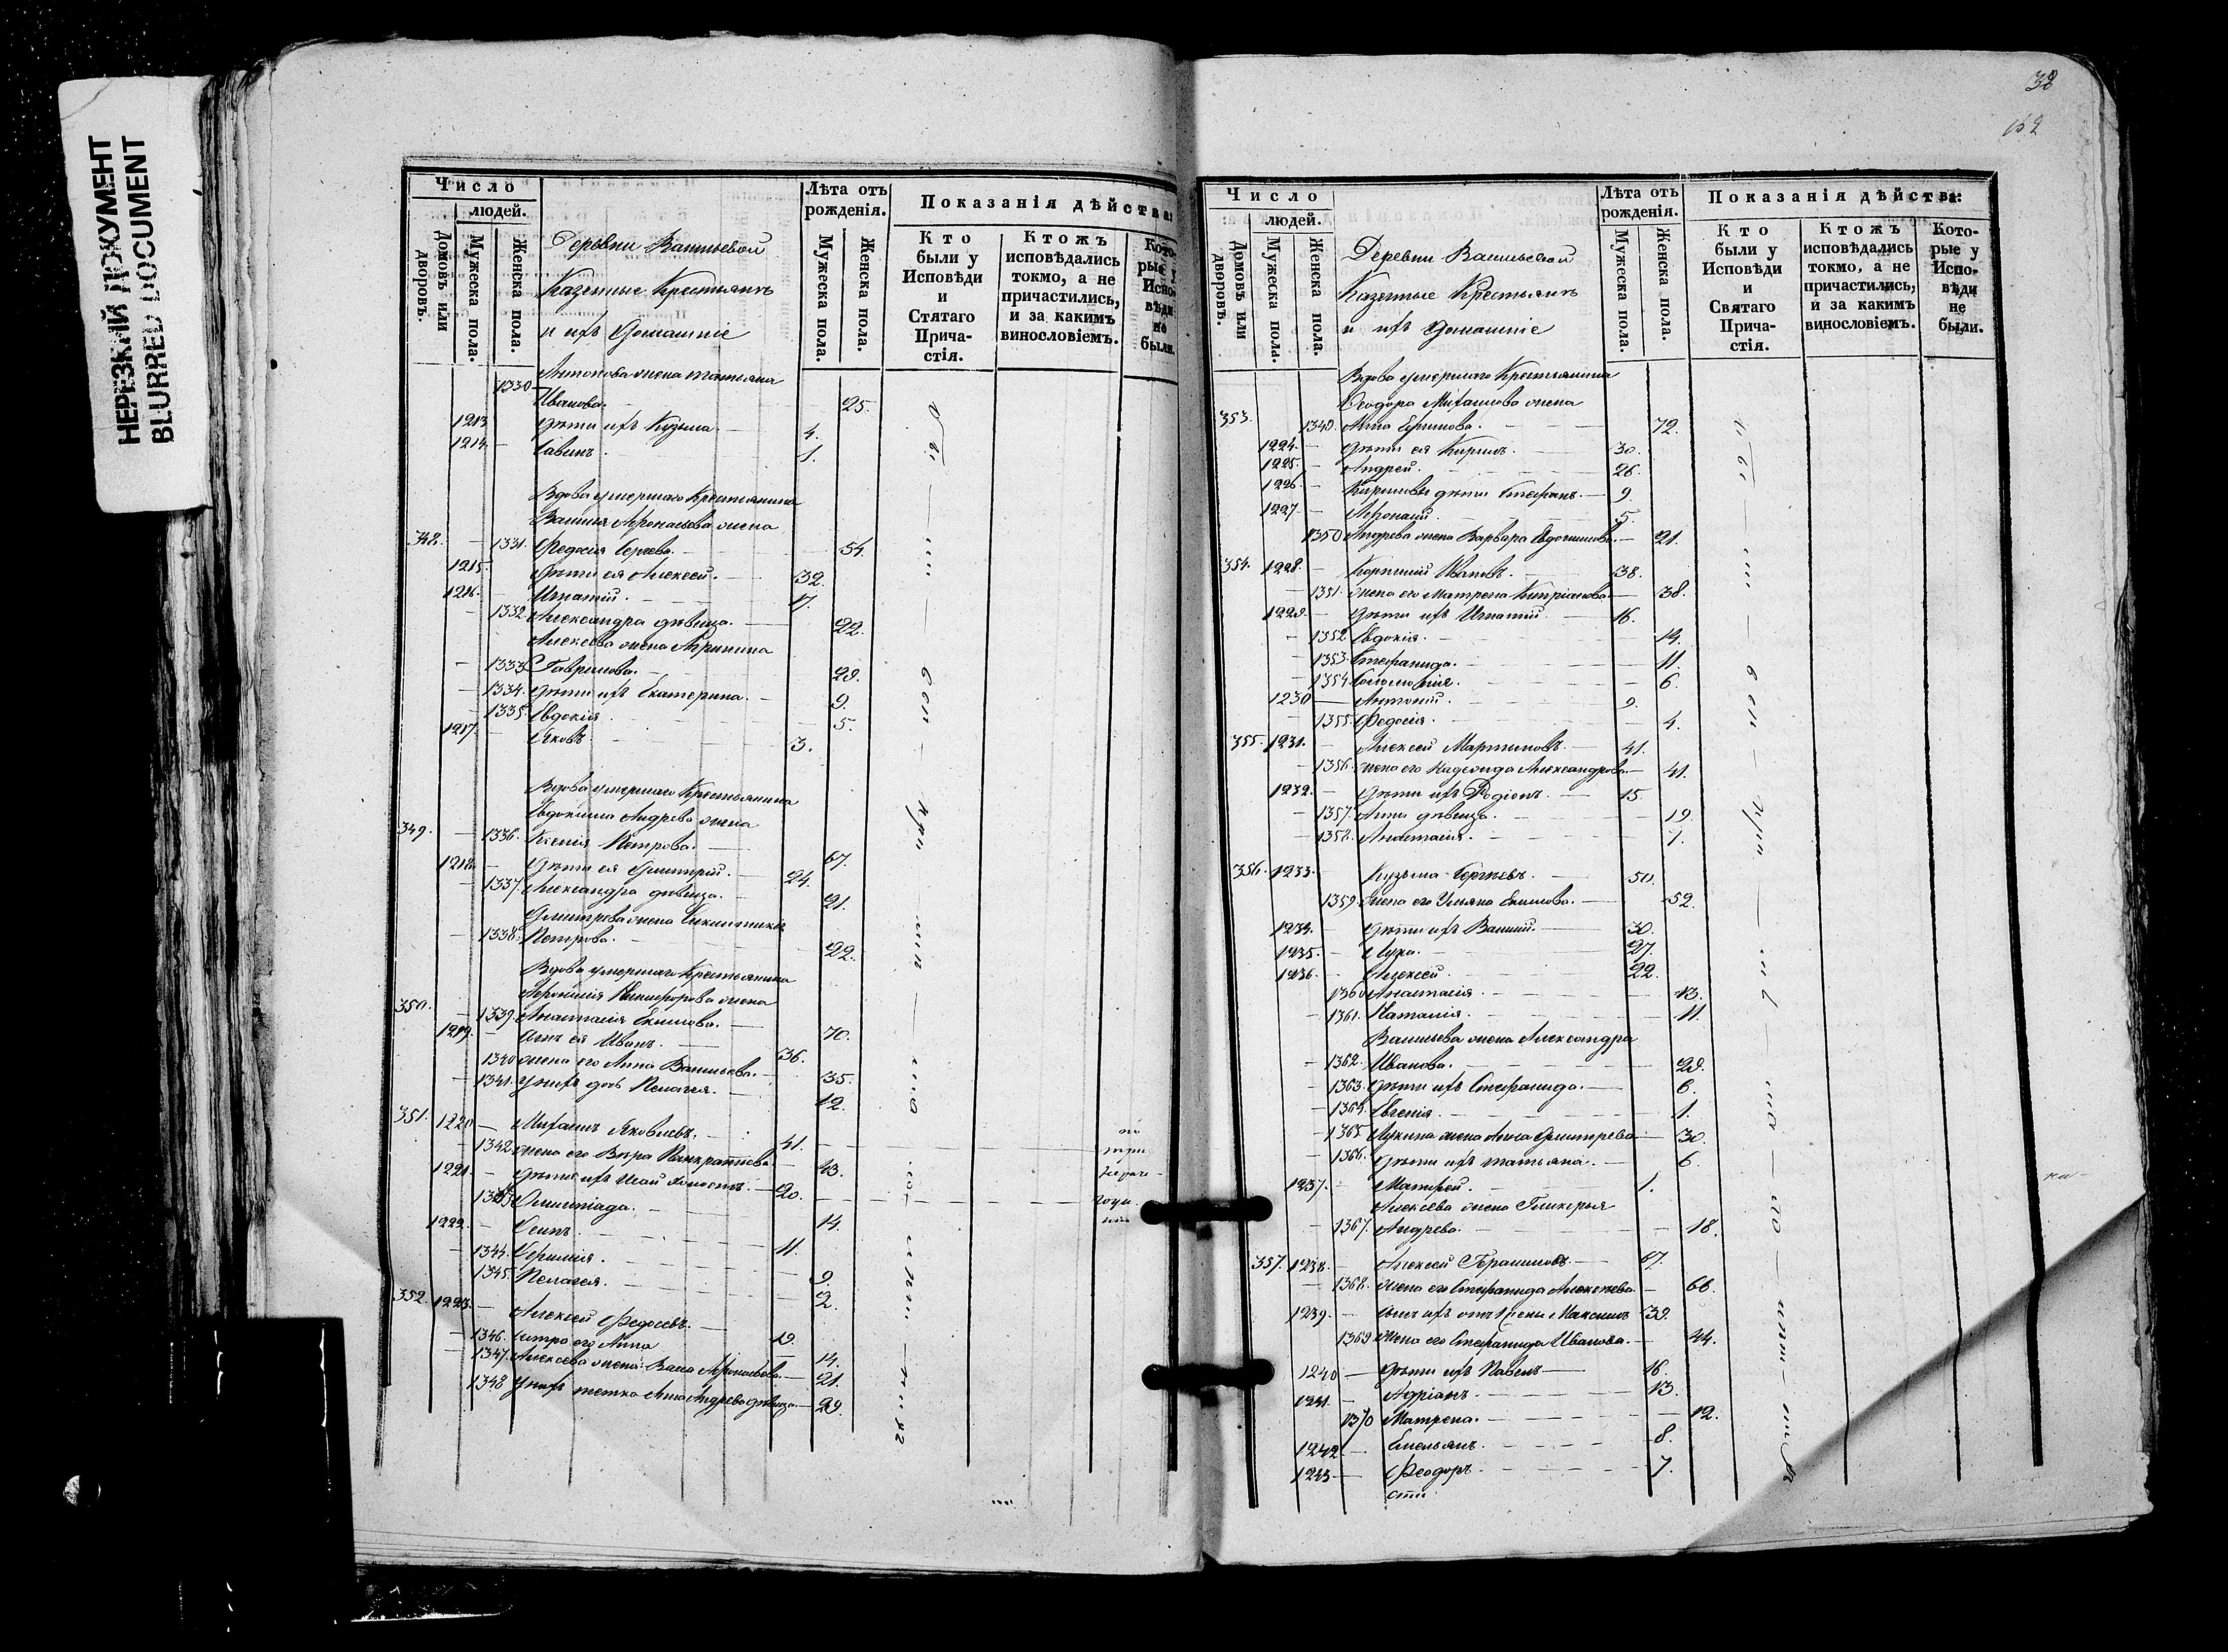 НЕРЕЗКИЙ ДОКУМЕНТ
BLURRED DOCUMENT
Число
людей.
Домовъ или дворовъ.
Мужеска пола.
Женска пола.
Деревни Васильевой
Казенные Крестьянъ
и ихъ домашніе
Лѣта отъ рожденія.
Мужеска пола.
Женска пола.
Показанія дѣйства:
Кто были у Исповѣди и Стятаго Прича-стія.
Ктожъ исповѣдались токмо, а не причастились, и за какимъ винословіемъ.
Кото-рые у Испо-вѣди не были.
Антонова жена Татьяна
1330 Иванова. 25.
1213 дѣти ихъ Кузьма. 4.
1214. Савинъ. 1.
Вдова умершаго Крестьянина
Василья Афонасьева жена
348. 1331. Федосія Сергѣева. 54.
1215. дѣти ея Алексей. 32.
1216. Игнатій. 17.
1332 Александра дѣвица. 22.
Алексѣева жена Агрипина
1333 Гаврилова. 29.
1334. дѣти ихъ Екатерина. 9.
1335 Евдокія. 5.
1217. Яковъ 3.
Вдова умершаго Крестьянина
Евдокима Андреева жена
349. 1336. Ксенія Петрова. 67.
1218. дѣти ея Димитрій. 24.
1337. Александра дѣвица. 21.
1338. Петрова. 22.
Вдова умершаго Крестьянина
Никифорова жена
350. 1339. Анастасія Екимова. 70.
1219. сынъ ея Иванъ. 36.
1340 жена его Анна Васильева. 35.
1341. у нихъ дочь Пелагея. 12.
351. 1220 Михаилъ Яковлевъ. 41.
1342 жена его Вѣра Панкратіева. 43.
1221 дѣти ихъ Исай холостъ. 20.
1343 Олимпіада. 14.
1222. Осипъ. 11.
1344. 9.
1345. Пелагея. 2.
352. 1223. Алексей Федосѣевъ. 19.
1346. сестра его Анна 14.
1347. Алексѣева жена Васса Афонасьева. 21.
1348 у нихъ тетка Анна Андреева дѣвица. 29.
по
нерач-
38
162
Число
людей.
Домовъ или дворовъ.
Мужеска пола.
Женска пола.
Деревни Васильевой
Казенные Крестьянъ
и ихъ домашніе
Лѣта отъ рожденія.
Мужеска пола.
Женска пола.
Показанія дѣйства:
Кто были у Исповѣди и Святаго Прича-стія.
Ктожъ исповѣдались токмо, а не причастились, и за какимъ винословіемъ.
Кото-рые у Испо-вѣди не были.
Вдова умершаго Крестьянина
Феодора Михаилова жена
353. 1349. Анна Ефимова. 72.
1224. дѣти ея Кирилъ. 30.
1225. Андрей. 26.
1226. Кириловы дѣти Стефанъ. 9.
1227 Афонасій. 5.
1350 Андреева жена Варвара Евдокимова. 21.
354. 1228. Корнилій Ивановъ. 38.
1351. жена его Матрена Кипріанова. 38.
1229. дѣти ихъ Игнатій. 16.
1352 Евдокія. 14.
1353. Стефанида. 11.
1354 6.
1230 Антоній. 9.
1355. Федосія. 4.
355. 1231. Алексей Мартиновъ. 41.
1356. жена его Александрова. 41.
1232. дѣти ихъ Родіонъ. 15.
1357. Анна дѣвица. 19.
1358. Анастасія. 7.
356. 1233. Кузьма Сергѣевъ. 50.
1359. жена его Ульяна Екимова. 52.
1234. дѣти ихъ Василій. 30.
1235. Лука. 27.
1236. Алексей. 22.
1360 Анастасія. 13.
1361. Наталія. 11.
Васильева жена Александра
1362. Иванова. 29.
1363. дѣти ихъ Стефанида. 6.
1364. Евгенія. 1.
1365. Лукина жена Анна Димитрева 30.
1366. дѣти ихъ Татьяна. 6.
1237. Матфей. 1.
Алексѣева жена Гликерья
1367. Андреева. 18.
357. 1238. Алексей Герасимовъ. 67.
1368. жена его Стефанида Алексѣева. 66.
1239. Максимъ 39.
1369 жена его Стефанида Иванова. 44.
1240 дѣти ихъ Павелъ 16.
1241. Адріанъ. 13.
1370 Матрена. 12.
1242 Емельянъ. 8.
1243 Феодоръ. 7.